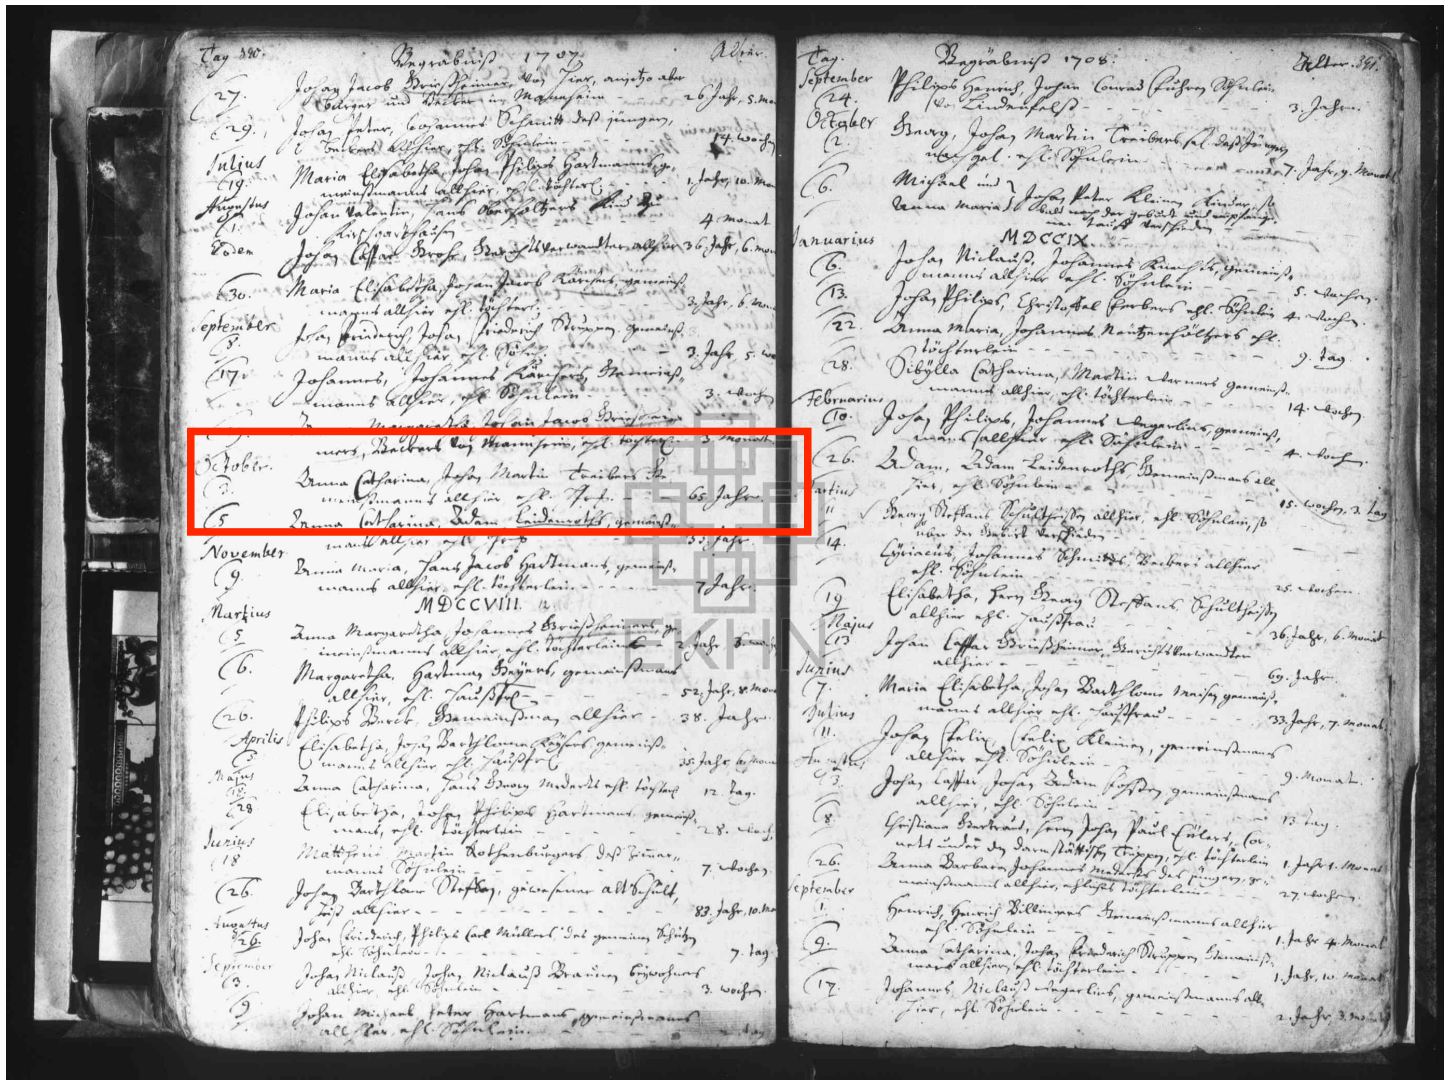 Tag 390. Begräbniß 1707. Alter.
27. Johan Jacob Brießheimer von hier, anjetzo aber
burger und Becker in Manheim 26 Jahr, 5. Mo
29. Johan Peter, Johannes Schmitt deß jüngern,
Beckers allhier, ehl. Söhnlein 14. wochen
Julius
19. Maria Elisabetha, Johan Philips Hartmanns, ge,
meinßmanns allhier, ehl. töchterl. 1 Jahr, 10. Mon
Augustus
1. Johan Valentin, Hans Oberholtzers Kind zu
Kirschgarthausen 4. monat
Eodem Johan Caspar Krohe, Gerichtsverwandter allhier 36. Jahr, 6. mon
30. Maria Elisabetha, Johan Jacob Kärchers, gemeinß,
manns allhier ehl. töchter, 3. Jahr, 6. Mon
September
8. Johan Friederich, Johan Friederich Struppen, gemeinß,
manns allhier, ehl. Söhnl. 3. Jahr, 5. wo
17. Johannes, Johannes Kärchers, Gemeinß,
manns allhier, ehl. Söhnlein 3. woch
Margaretha, Johan Jacob Brießhei
mers, Beckers von Mannheim, ehl. töchterl. 3. monat.
October.
Anna Catharina, Johan Martin Treibers Ge
meinßmanns allhier ehl. 65 Jahr.
5 Anna Catharina, Adam Leidenroths, gemeinß,
manns allhier ehl. 33. Jahr.
November
9. Anna Maria, Hans Jacob Hartmans, gemeinß,
manns allhier, ehl. töchterlein 7 Jahr.
MDCCVIII
Martius
5 Anna Margaretha, Johannes Brießheimers, ge
meinßmanns allhier, ehl. töchterlein 2. Jahr
6. Margaretha, Hartman Beyers, gemeinßmanns
allhier, ehl. Haußfr. 52. Jahr, 8. Mon
26. Philips Burck, Gemeinßman allhier 38. Jahr.
Aprilis
Elisabetha, Johan Barthlome Köhlers, gemeinß,
manns allhier ehl. haußfr. 35. Jahr 6. Mon
Majus
18. Anna Catharina, Hans Georg Mederts ehl. töchterl. 12. tag.
28 Elisabetha, Johan Philips Hartmans, gemeinß,
mans, ehl. töchterlein 28. woch
Junius
18 Matthein, Martin Rothenburgers deß Zimmer,,
manns Söhnlein 7. wochen
26. Johan Barthlome Steffan, gewesener alt Schult,
heiß allhier 83. Jahr, 10. Mo
Augustus
26. Johan Friederich, Philips Carl Müllers, des gemeinen Schützen
ehl. Söhnlein 7. tag
September
3. Johan Niclauß, Johan Niclauß Braunen beywohners
allhier ehl. Söhnlein 3. wochen.
9 Johan Michael, Peter Hartmans, gemeinßmanns
allhier, ehl. Söhnlein.
Tag. Begräbniß 1708. Alter. 391.
September
24. Philips Henrich, Johan Conrad Führers Söhnlein
von Lindenfelß 3. Jahr.
October
2. Georg, Johan Martin Treibers, sel. deß jüngern
nachgel. ehl. Söhnlein 7. Jahr, 9. Monat
6. Michael und
Anna Maria Johan Peter Kleinen Kinder, so
bald nach der geburt und empfange
ner tauff verschieden
MDCCIX.
Januarius
6. Johan Niclauß, Johannes Knechts, gemeinß,
manns allhier ehl. Söhnlein 5. wochen.
13. Johan Philips, Christoffel Ferbers ehl. Söhnlein 4. wochen.
22. Anna Maria, Johannes Neutzenhöltzers ehl.
töchterlein 9. tag
28. Sibylla Catharina, Martin Werners gemeinß,
manns allhier, ehl. töchterlein 14. wochen
Februarius
10. Johan Philips, Johannes Wegerlins, gemeinß,
mans allhier ehl. Söhnlein 4. woch.
26. Adam, Adam Leidenroths, Gemeinßmans all,
hier, ehl. Söhnlein 15. wochen, 3. tag
Martius
11 Georg Steffans Schultheißen allhier, ehl. Söhnlein, so
nach der Geburt verschieden
14. Cyriacus, Johannes Schmidts, Beckers allhier
ehl. Söhnlein 25. wochen
19 Elisabetha, Herrn Georg Steffans, Schultheißen
allhier ehl. Haußfrau 36. Jahr, 6. Monat
Majus
13 Johan Caspar Brießheimer, Gerichtsverwandter
allhier 69. Jahr.
Junius
7. Maria Elisabetha, Johan Barthlome Meisen, gemeinß,
manns allhier ehl. Haußfrau 33. Jahr, 7. monat
Julius
11. Johan Felix, Felix Kleinen, gemeinßmans
allhier ehl. Söhnlein 9. Monat.
Augustus
3. Johan Caspar, Johan Adam gemeinßmans
allhier, ehl. Söhnlein 13 tag.
8 Christiana Gertraud, Herrn Johan Paul Eulers, Cor,
nets under den darmstättischen Truppen, ehl. töchterlein 1. Jahr 1. Monat
26. Anna Barbara, Johannes Mederts des jüngern, ge,
meinßmanns allhier, ehliches töchterlein 27 wochen
September
1. Henrich, Henrich Billmeyers Gemeinßmanns allhier
ehl. Söhnlein 1. Jahr 4. Monat
9. Anna Catharina, Johan Friederich Struppen Gemeinß,
mans allhier, ehl. töchterlein 1. Jahr, 10. monat
17. Johannes, Niclauß Wegerlins, gemeinßmanns all,
hier, ehl. Söhnlein 2. Jahr, 3. Monat
EKHN